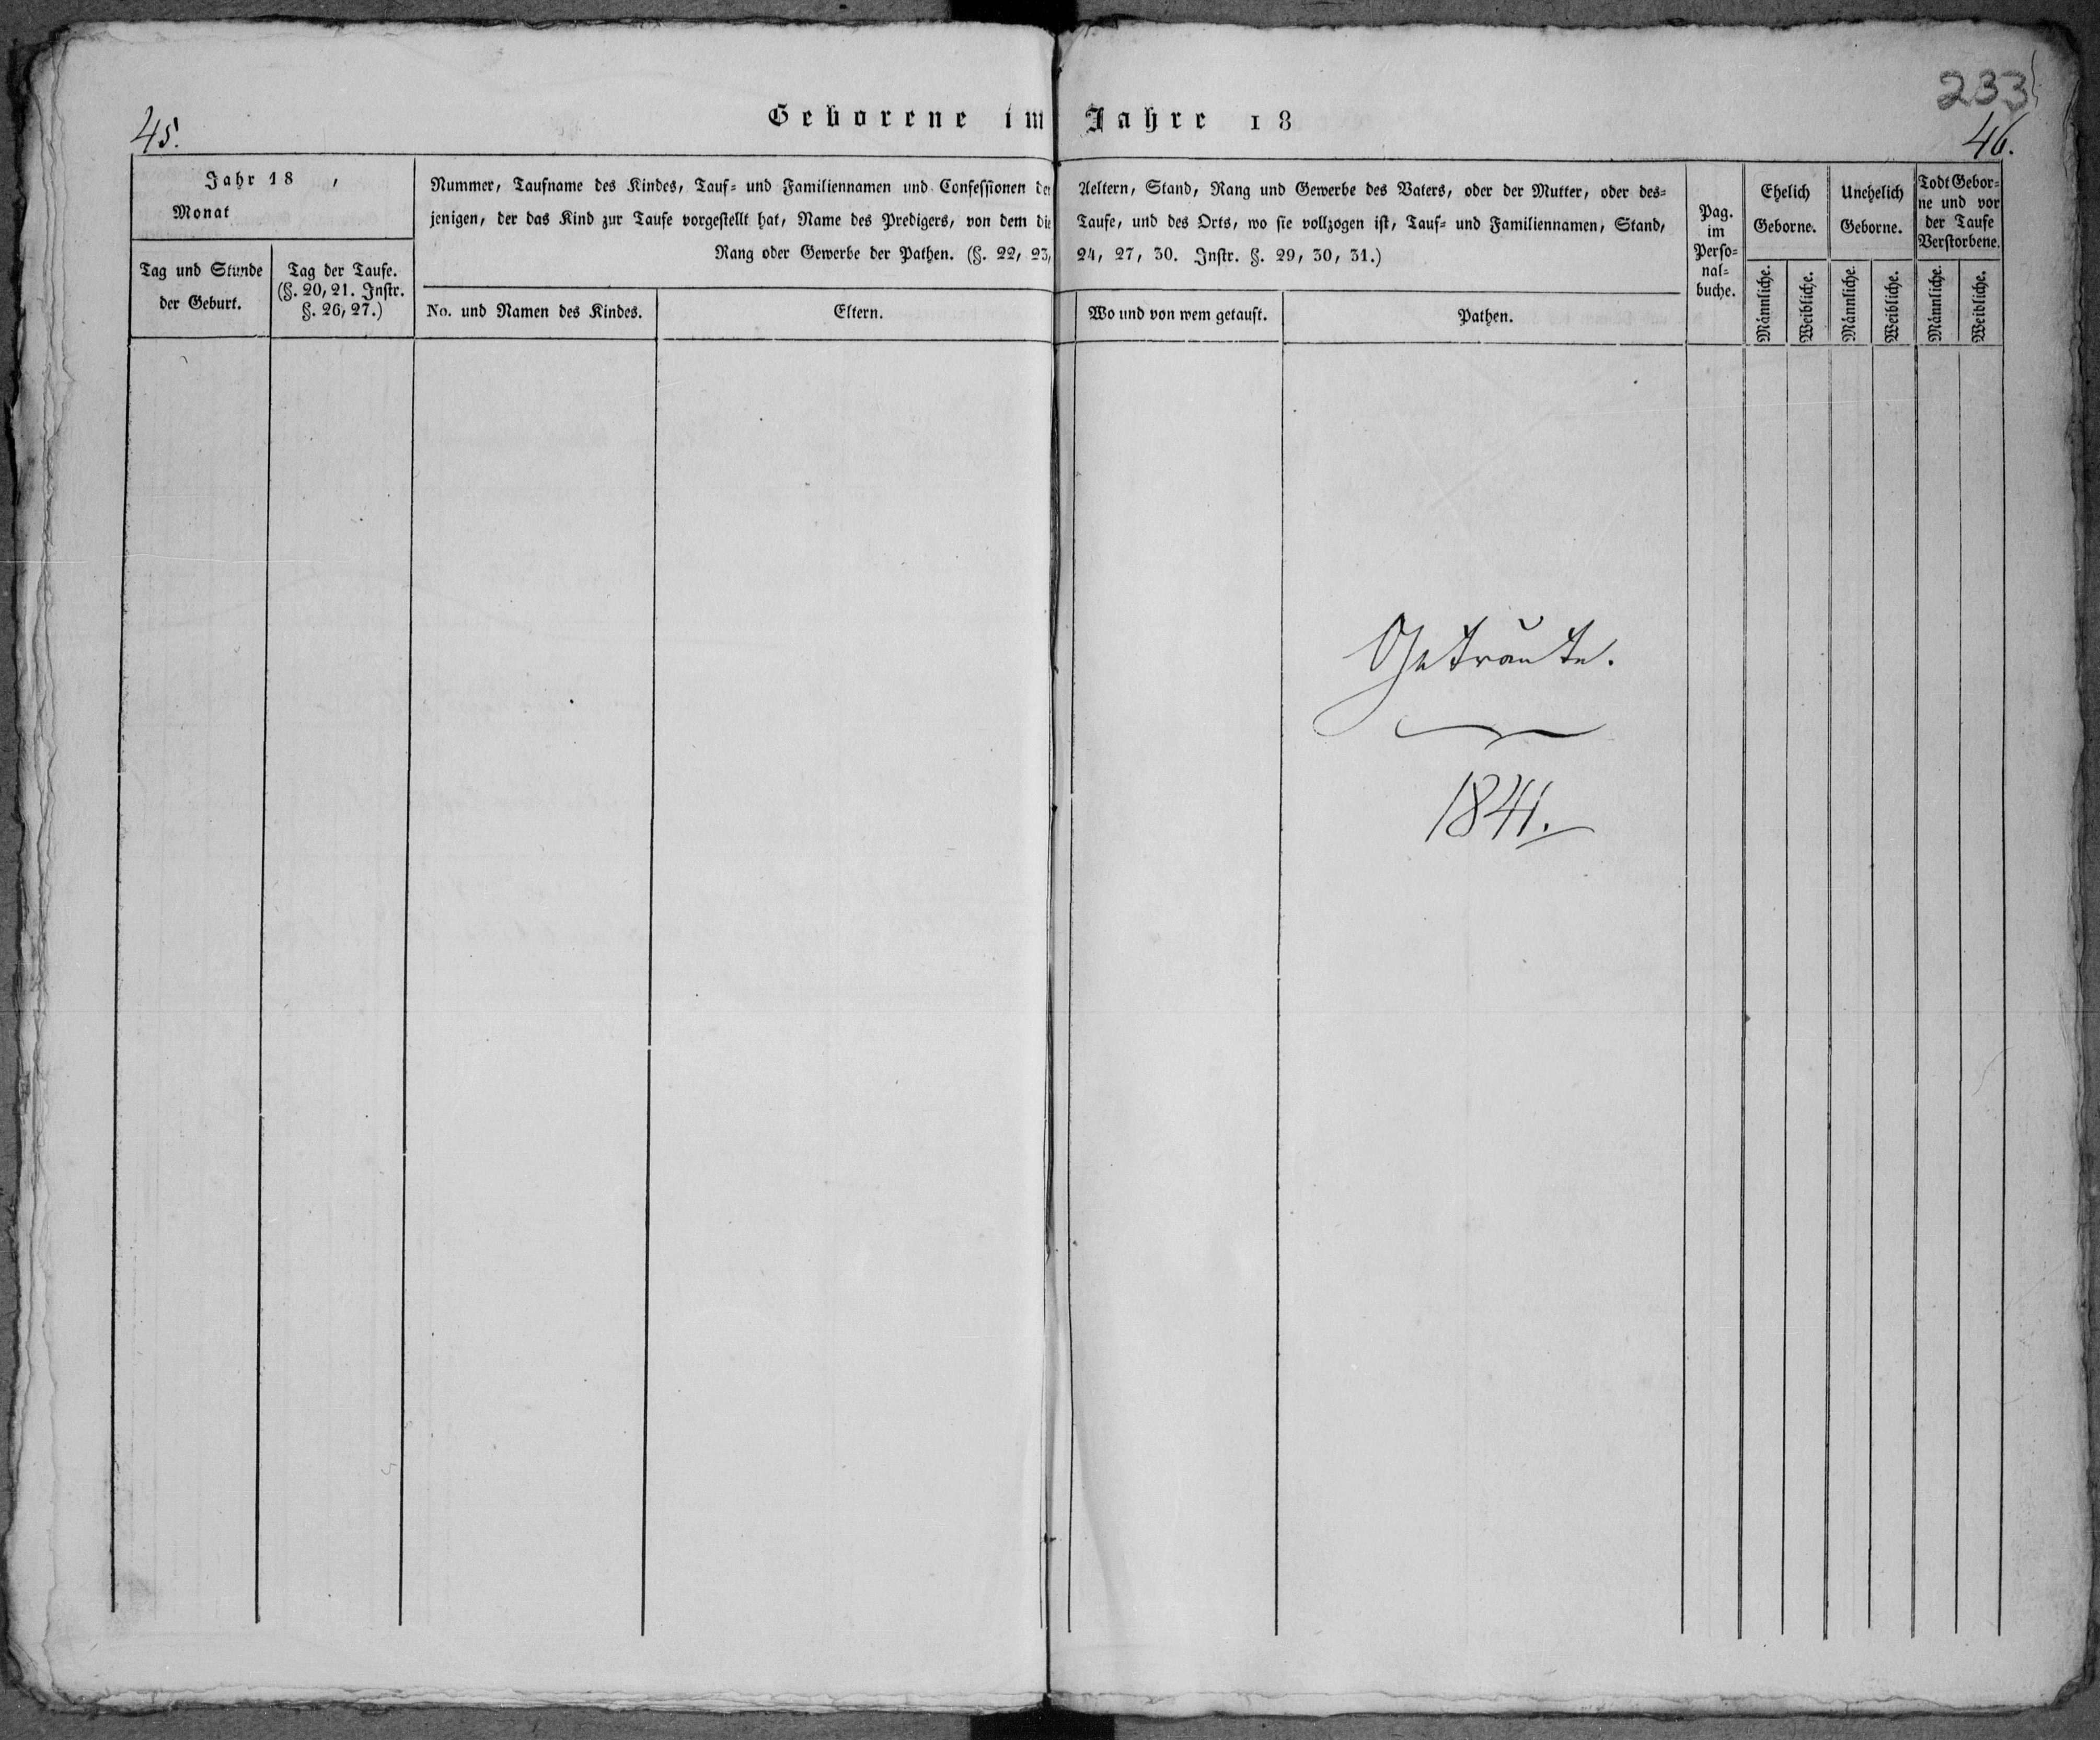 233
45.
46.
Geborene im Jahre 18
Jahr 18 ,
Monat
Tag und Stunde
der Geburt.
Tag der Taufe.
(§. 20, 21. Instr.
§. 26, 27.)
Nummer, Taufname des Kindes, Tauf- und Familiennamen und Confessionen der Aeltern, Stand, Rang und Gewerbe des Vaters, oder der Mutter, oder des-
jenigen, der das Kind zur Taufe vorgestellt hat, Name des Predigers, von dem die Taufe, und des Orts, wo sie vollzogen ist, Tauf- und Familiennamen, Stand,
Rang oder Gewerbe der Pathen. (§. 22, 23, 24, 27, 30. Instr. §. 29, 30, 31.)
No. und Namen des Kindes.
Eltern.
Wo und von wem getauft.
Pathen.
Pag.
im
Perso-
nal-
buche.
Ehelich
Geborne.
Männliche.
Weibliche.
Unehelich
Geborne.
Männliche.
Weibliche.
Todt Gebor-
ne und vor
der Taufe
Verstorbene.
Männliche.
Weibliche.
Getraute.
1841.